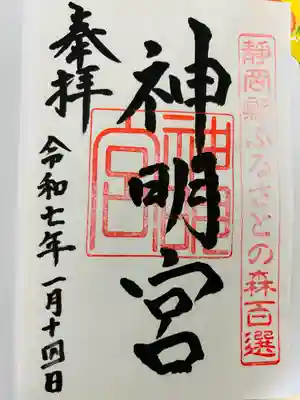 静岡県ふるさとの森百選
神明宮
神明宮
奉拝
令和七年一月十四日